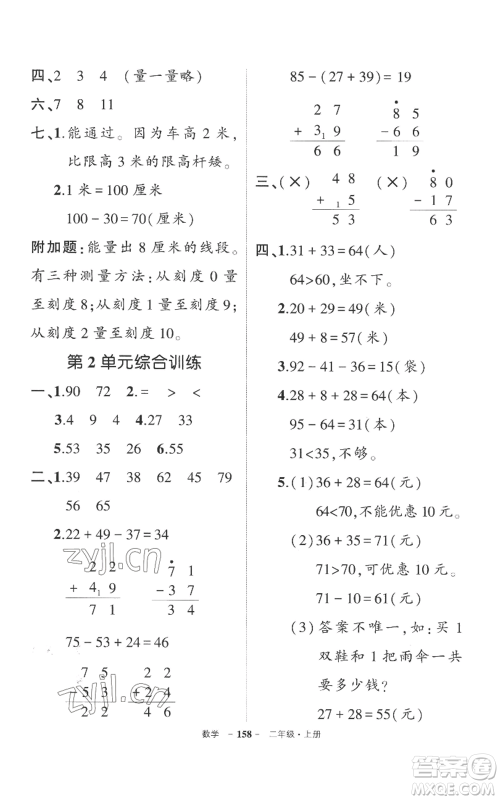 四、2 3 4 (量一量略)
六、7 8 11
七、1.能通过。因为车高 2 米，
比限高 3 米的限高杆矮。
2.1 米=100 厘米
100-30=70(厘米)
附加题:能量出 8 厘米的线段。
有三种测量方法:从刻度 0 量
至刻度 8;从刻度 1 量至刻度 9;
从刻度 2 量至刻度 10。
第 2 单元综合训练
一、1.90 72 2.= > <
3.4 9 4 4.27 33
5.53 35 26 6.55
二、1.39 47 38 62 45 79
56 65
2.22+49-37=34
2 2 7 1
+ 4 9 - 3 7
7 1 3 4
75-53+24=46
7 5 2 2
- 5 3 + 2 4
2 2 4 6
85-(27+39)=19
2 7 8 5
+ 3 9 - 6 6
6 6 1 9
三、(×) 4 8 (×) 8 0
+ 5 - 1 7
5 3 6 3
四、1.31+33=64(人)
64>60,坐不下。
2.20+29=49(米)
49+8=57(米)
3.92-41-36=15(页)
4.28+8+28=64(本)
95-64=31(本)
31<35,不够。
5.(1)36+28=64(元)
64<70,不能优惠 10 元。
(2)36+35=71(元)
71>70,可优惠 10 元。
71-10=61(元)
(3)答案不唯一,如:买 1
双鞋和 1 把雨伞一共
要多少钱?
27+28=55(元)
数学 - 158 - 二年级·上册
zyjl.cn
zyjl.cn